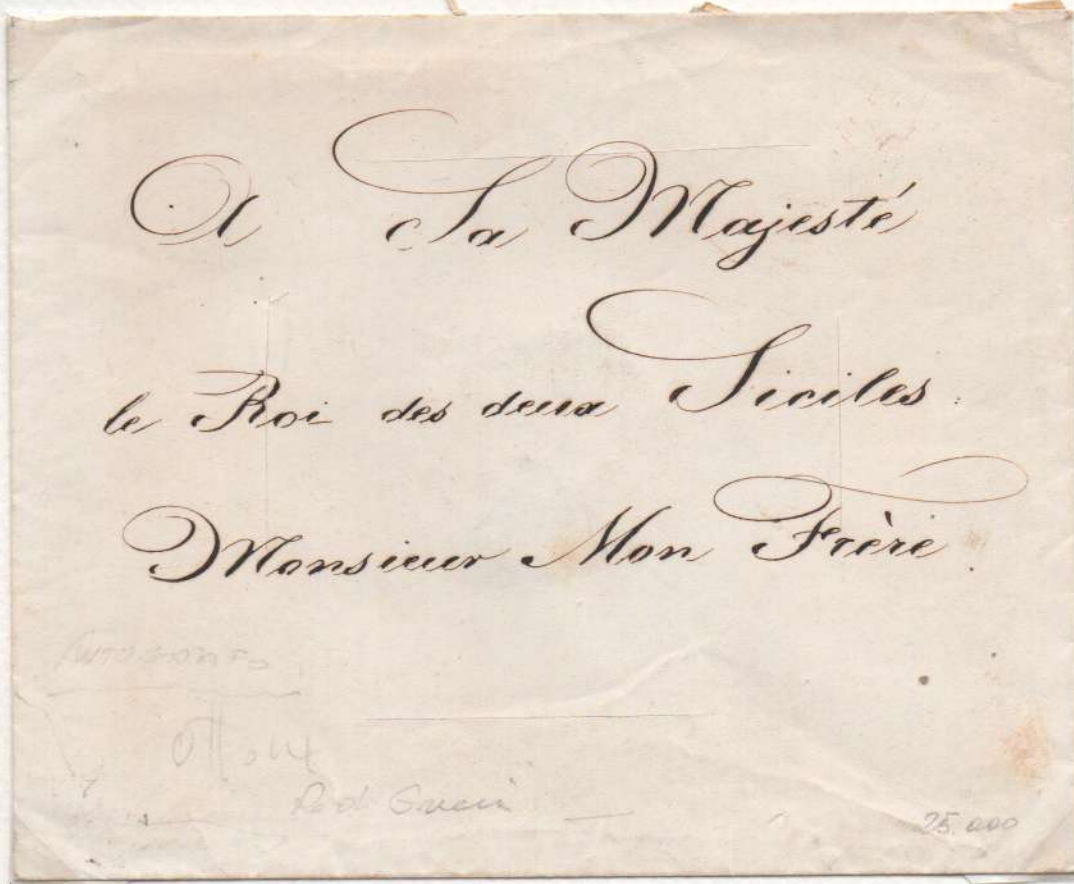 A Sa Majesté
le Roi des deux Siciles.
Monsieur Mon Frère
Autografo
25.000